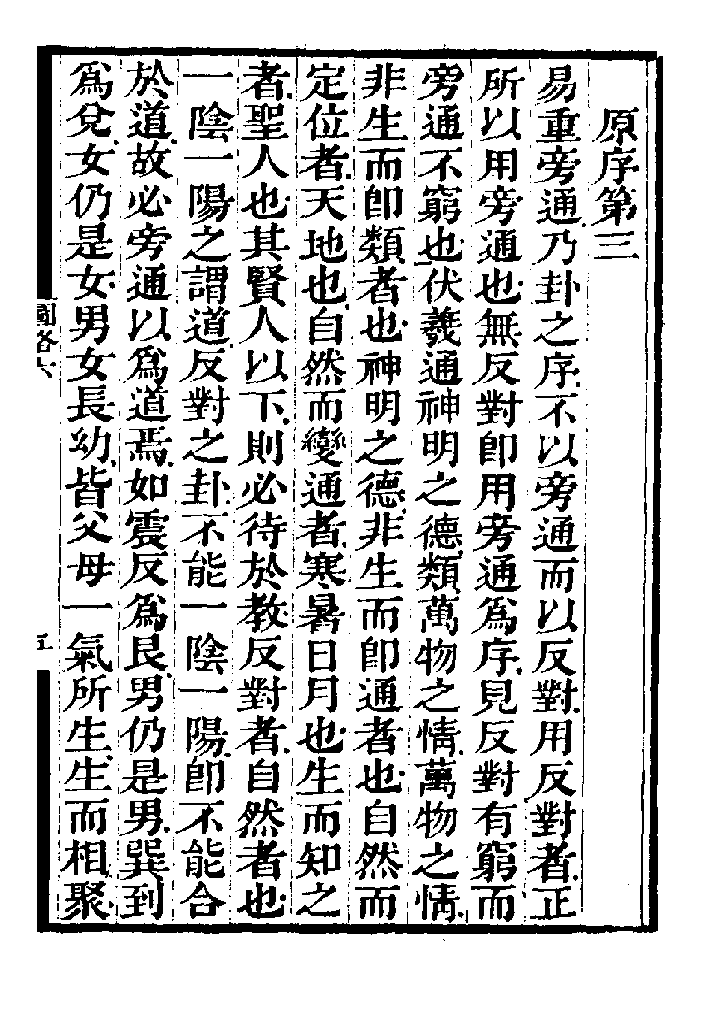 原序第三
易重旁通乃卦之序不以旁通而以反對用反對者正
所以用旁通也無反對卽用旁通爲序見反對有窮而
旁通不窮也伏羲通神明之德類萬物之情萬物之情
非生而卽類者也神明之德非生而卽通者也自然而
定位者天地也自然而變通者寒暑日月也生而知之
者聖人也其賢人以下則必待於教反對者自然者也
一陰一陽之謂道反對之卦不能一陰一陽卽不能合
於道故必旁通以爲道焉如震反爲艮男仍是男巽到
爲兌女仍是女男女長幼皆父母一氣所生生而相聚
圖略六
五